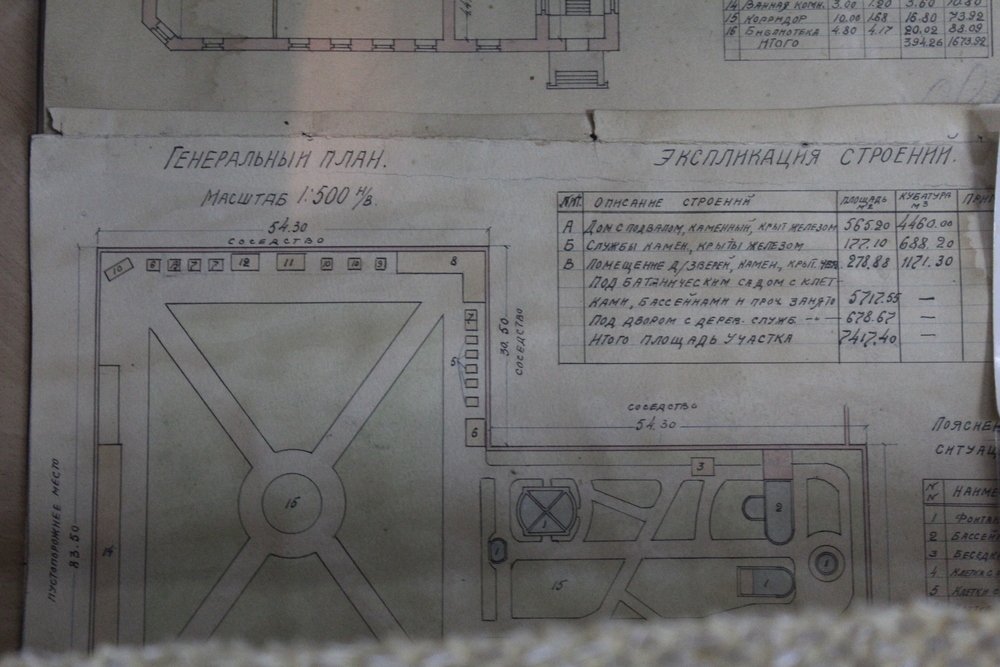 14 ВАННАЯ КОМН. 3.00 1.20 3.60
15 КОРРИДОР 10.00 1.68 16.80 73.92
16 БИБЛИОТЕКА 4.80 4.17 20.02 88.09
ИТОГО 394.26 1673.92
ГЕНЕРАЛЬНЫЙ ПЛАН.
МАСШТАБ 1:500 Н/В.
ЭКСПЛИКАЦИЯ СТРОЕНИЙ.
ОПИСАНИЕ СТРОЕНИЙ ПЛОЩАДЬ М2 КУБАТУРА М3
А ДОМ С ПОДВАЛОМ, КАМЕННЫЙ, КРЫТ ЖЕЛЕЗОМ 565.20 4460.00
Б СЛУЖБЫ КАМЕН., КРЫТЫ ЖЕЛЕЗОМ 177.10 688.20
В ПОМЕЩЕНИЕ Д/ЗВЕРЕЙ, КАМЕН., КРЫТ. ЖЕЛ. 278.88 1171.30
ПОД БАТАНИЧЕСКИМ САДОМ С КЛЕТ-
КАМИ, БАССЕЙНАМИ И ПРОЧ. ЗАНЯТО 5717.55 —
ПОД ДВОРОМ С ДЕРЕВ. СЛУЖБ — 678.67 —
ИТОГО ПЛОЩАДЬ УЧАСТКА 7417.40 —
54.30
СОСЕДСТВО
10 12 11 10 10 9 8
7
5
6
30.50
СОСЕДСТВО
СОСЕДСТВО
54.30
3
16
1
2
1
1
15
1
14
ПУСТОПОРОЖНЕЕ МЕСТО
83.50
ПОЯСНЕ
СИТУАЦ
N N НАИМЕ
1 ФОНТАН
2 БАССЕЙ
3 БЕСЕДК
4 КЛЕТКС
5 КЛЕТКИ